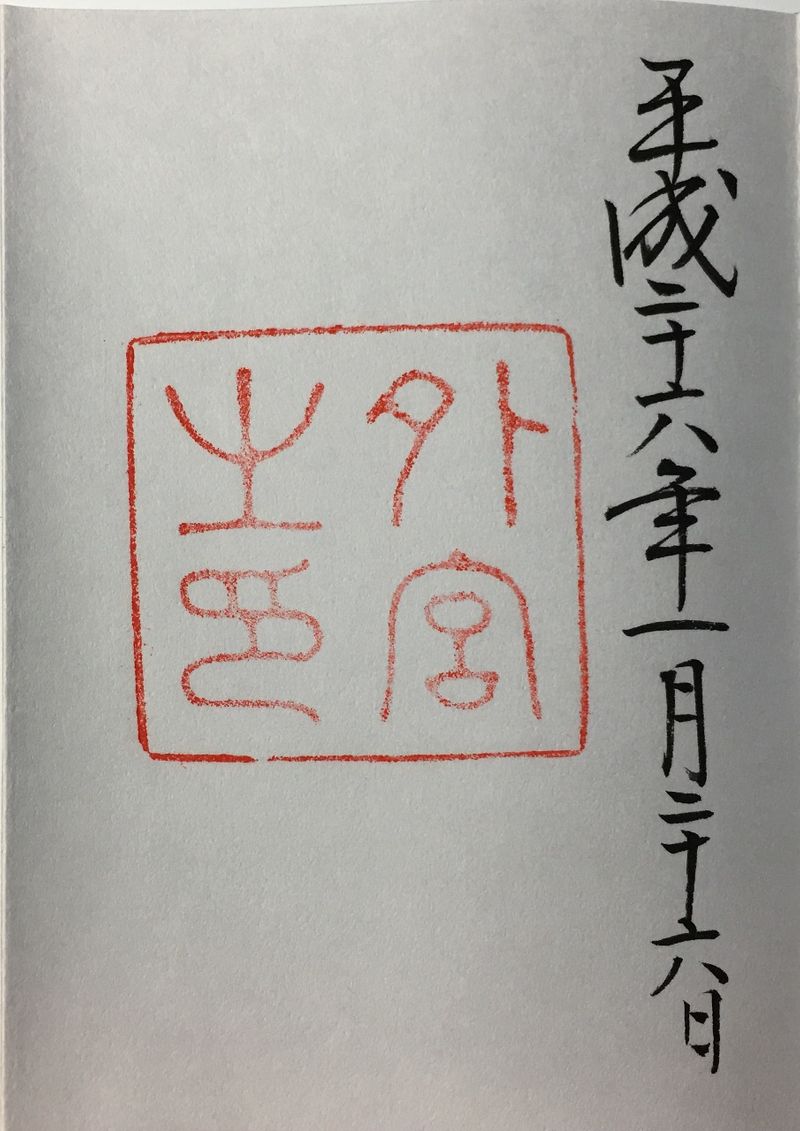 平成二十六年一月二十六日
外宮
之印